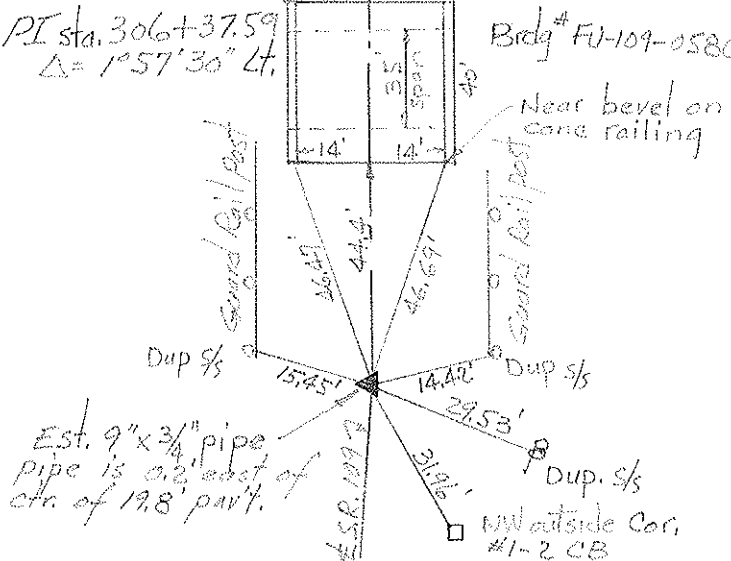 PI sta. 306+37.59
Δ = 1°57'30" Lt.
Brdg # FU-109-0580
35'
span
40'
Near bevel on
conc railing
14'
14'
Guard Rail post
Guard Rail post
46.47'
44.4'
46.69'
Dup s/s
Dup s/s
15.45'
14.42'
29.53'
Est. 9" x 3/4" pipe
pipe is 0.2' east of
ctr. of 19.8' pav't.
31.96'
Dup. s/s
S.R. 109
NW outside Cor.
#1-2 CB